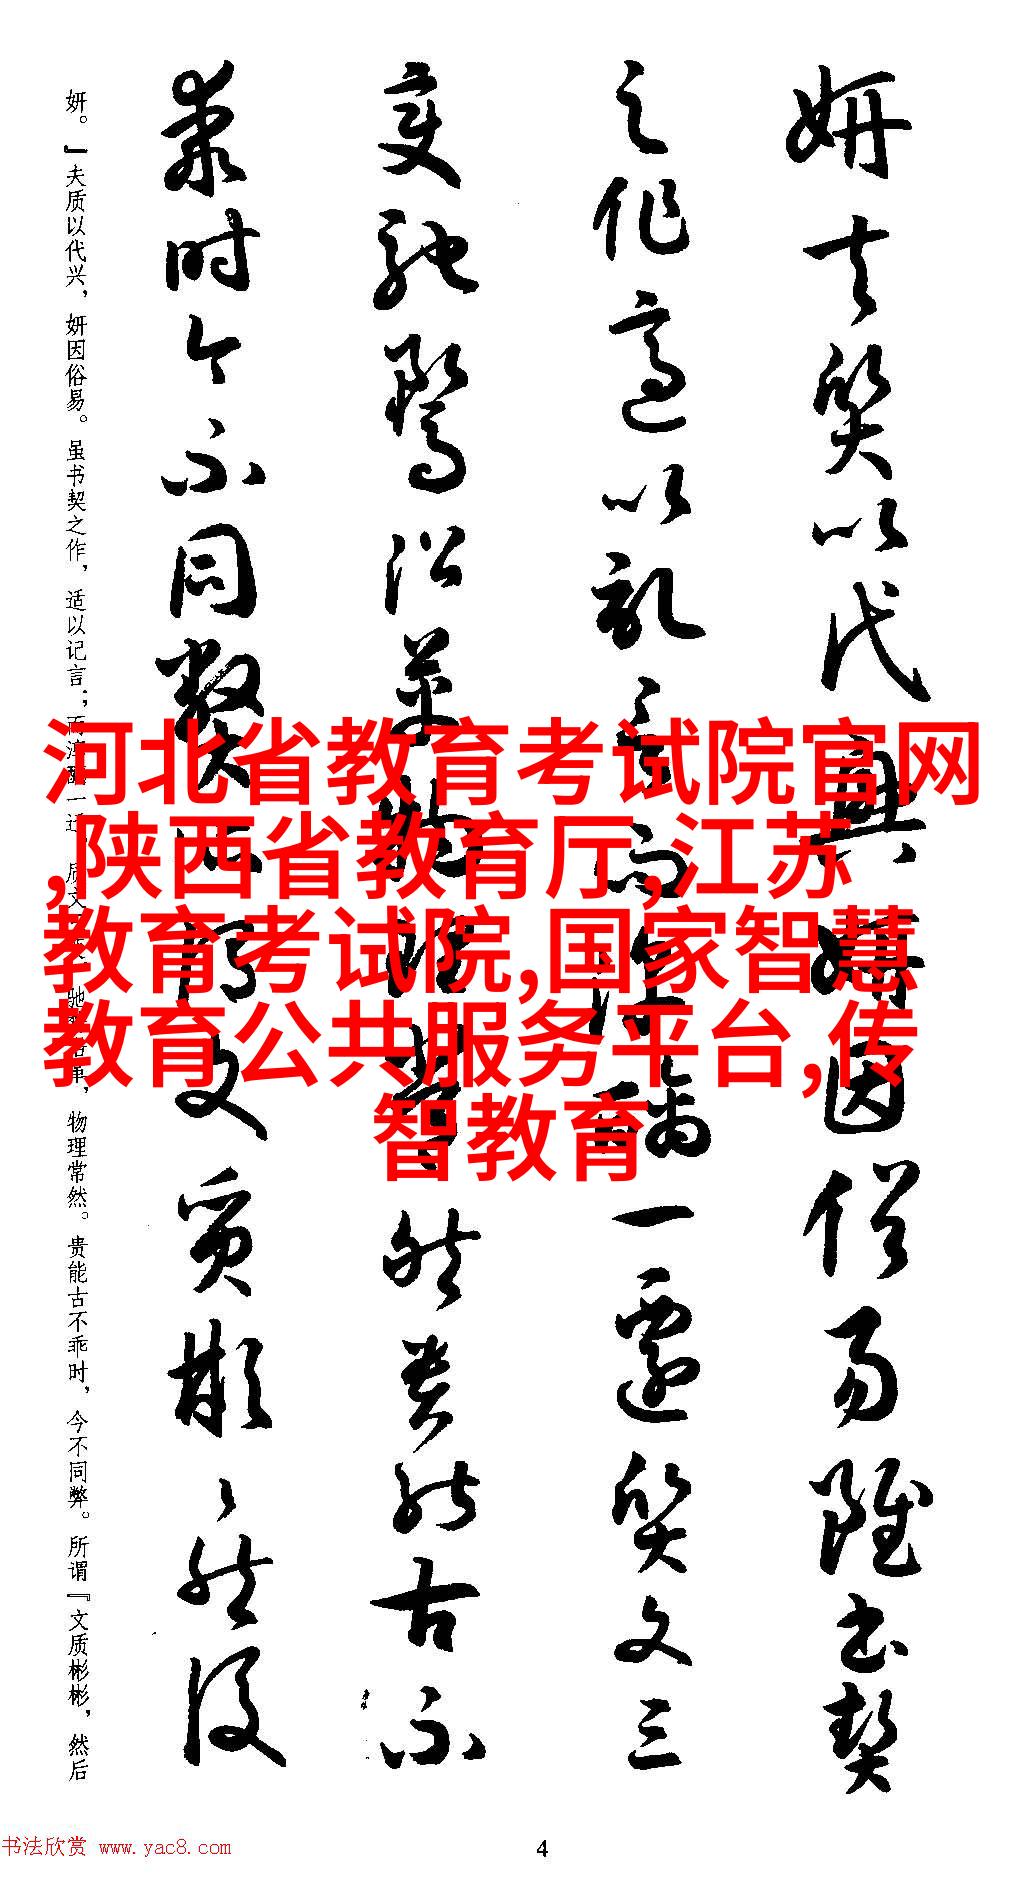 妍夫質以代興妍因俗易雖書契
之作適以記言而淳醨一遷質文三
變馳騖沿革物理常然貴能古不
乖時今不同弊所謂文質彬彬然後
妍。』夫质以代兴，妍因俗易。虽书契之作，适以记言；而淳醨一迁 质文 驰 沿革，物理常然。贵能古不乖时，今不同弊。所谓『文质彬彬，然后
河北省教育考试院官网
,陕西省教育厅,江苏
教育考试院,国家智慧
教育公共服务平台,传
智教育
书法欣赏 www.yac8.com
4